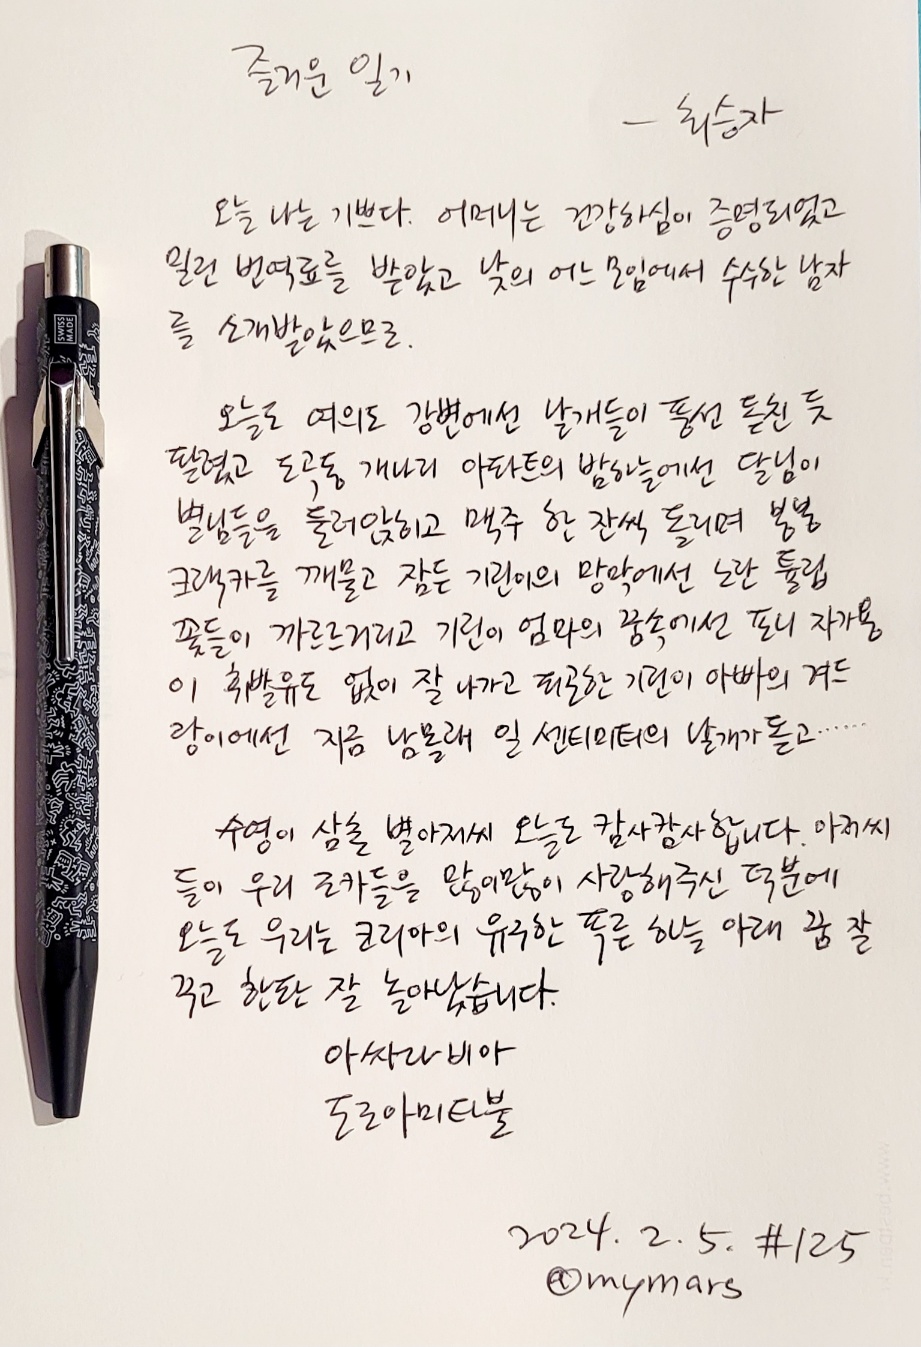 즐거운 일기
— 최승자
오늘 나는 기쁘다. 어머니는 건강하심이 증명되었고
밀린 번역료를 받았고 낮의 어느 모임에서 수수한 남자
를 소개받았으므로.
오늘도 여의도 강변에선 날개들이 풍선 돋친 듯
팔렸고 도곡동 개나리 아파트의 밤하늘에선 달님이
별님들을 둘러앉히고 맥주 한 잔씩 돌리며 봉봉
크랙카를 깨물고 잠든 기린이의 망막에선 노란 튤립
꽃들이 까르르거리고 기린이 엄마의 꿈속에선 포니 자가용
이 휘발유도 없이 잘 나가고 피곤한 기린이 아빠의 겨드
랑이에선 지금 남몰래 일 센티미터의 날개가 돋고……
수영이 삼촌 별아저씨 오늘도 캄사캄사합니다. 아저씨
들이 우리 조카들을 많이많이 사랑해주신 덕분에
오늘도 우리는 코리아의 유구한 푸른 하늘 아래 꿈 잘
꾸고 한판 잘 놀아났습니다.
아싸라비아
도로아미타불
2024. 2. 5. #125
@mymars
SWISS
MADE